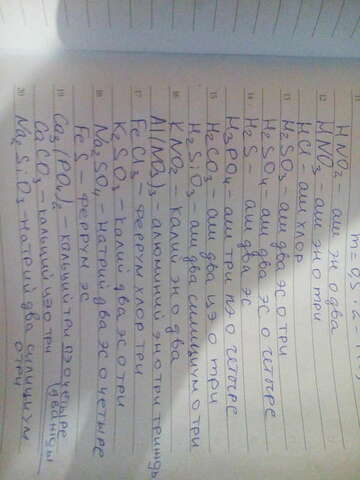 HNO2 - аш эн о два
HNO3 - аш эн о три
HCl - аш хлор
H2SO3 - аш два эс о три
H2SO4 - аш два эс о четыре
H2S - аш два эс
H3PO4 - аш три пэ о четыре
H2CO3 - аш два цэ о три
H2SiO3 - аш два силициум о три
KNO2 - калий эн о два
Al(NO3)3 - алюминий эн о три трижды
FeCl3 - феррум хлор три
K2SO3 - калий два эс о три
Na2SO4 - натрий два эс о четыре
FeS - феррум эс
Ca3(PO4)2 - кальций три пэ о четыре
дважды
CaCO3 - кальций цэ о три
Na2SiO3 - натрий два силициум
о три
12
13
14
15
16
17
18
19
20